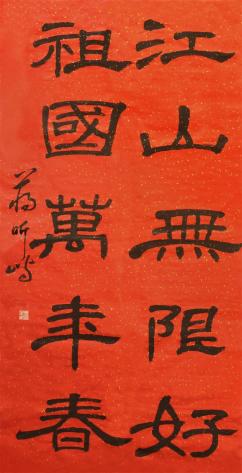 江山無限好
祖國萬年春
蔣昕峙